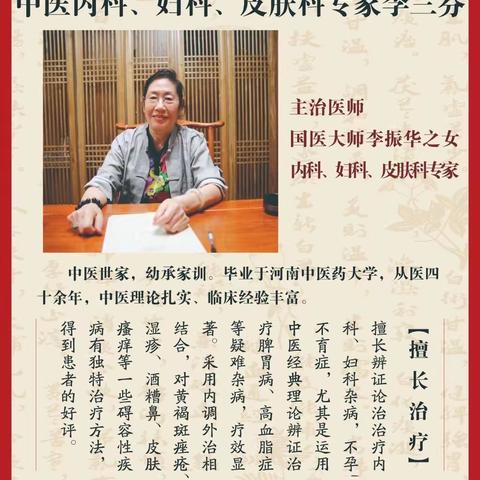 中医内科、妇科、皮肤科专家李三芬
主治医师
国医大师李振华之女
内科、妇科、皮肤科专家
中医世家，幼承家训。毕业于河南中医药大学，从医四
十余年，中医理论扎实、临床经验丰富。
【擅长治疗】
擅长辨证论治治疗内
科、妇科杂病，不孕
不育症，尤其是运用
中医经典理论辨证治
疗脾胃病、高血脂症
等疑难杂病，疗效显
著。采用内调外治相
结合，对黄褐斑痤疮、
湿疹、酒糟鼻、皮肤
瘙痒等一些碍容性疾
病有独特治疗方法，
得到患者的好评。